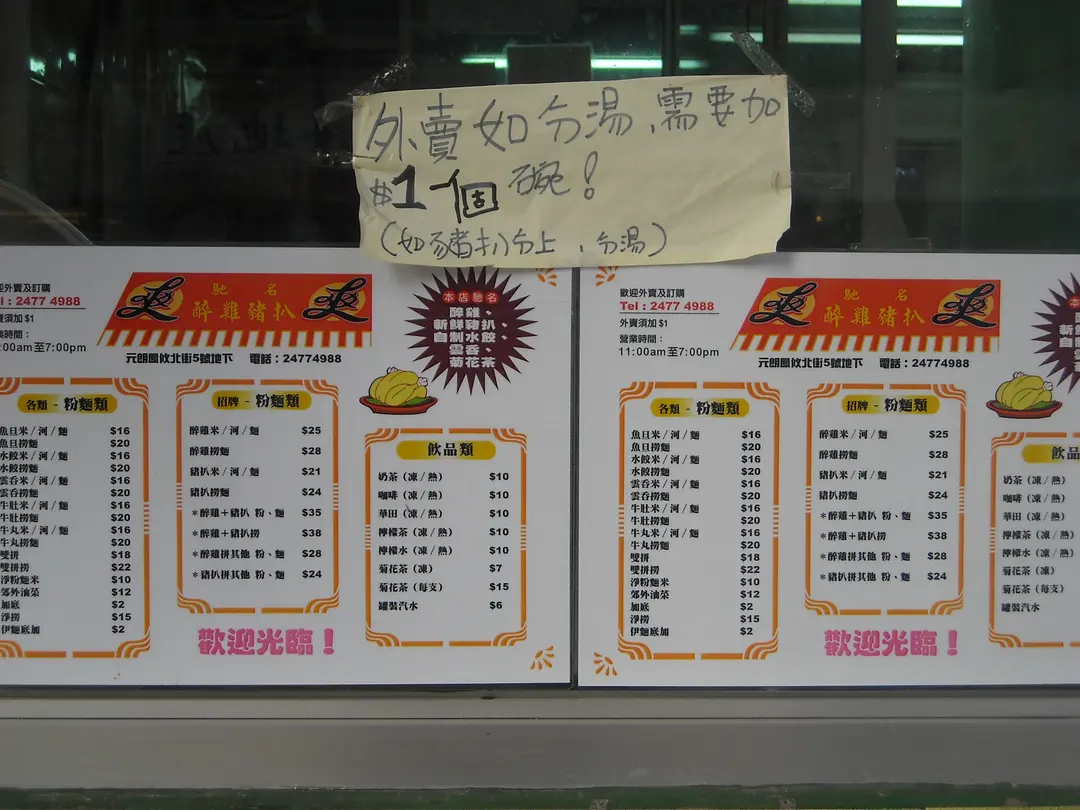 外賣如分湯,需要加
$1一個碗!
(如豬扒分上、分湯)
迎外賣及訂購
el : 2477 4988
賣須加$1
業時間:
:00am至7:00pm
馳名
醉雞豬扒
元朗鳳攸北街5號地下 電話:24774988
本店馳名
醉雞、
新鮮豬扒、
自制水餃、
雲吞、
菊花茶
各類 - 粉麵類
魚旦米/河/麵 $16
魚旦撈麵 $20
水餃米/河/麵 $16
水餃撈麵 $20
雲吞米/河/麵 $16
雲吞撈麵 $20
牛肚米/河/麵 $16
牛肚撈麵 $20
牛丸米/河/麵 $16
牛丸撈麵 $20
雙拼 $18
雙拼撈 $22
淨粉麵米 $10
郊外油菜 $12
加底 $2
淨撈 $15
伊麵底加 $2
招牌 - 粉麵類
醉雞米/河/麵 $25
醉雞撈麵 $28
豬扒米/河/麵 $21
豬扒撈麵 $24
*醉雞+豬扒 粉、麵 $35
*醉雞+豬扒撈 $38
*醉雞拼其他 粉、麵 $28
*豬扒拼其他 粉、麵 $24
歡迎光臨!
飲品類
奶茶(凍/熱) $10
咖啡(凍/熱) $10
華田(凍/熱) $10
檸檬茶(凍/熱) $10
檸檬水(凍/熱) $10
菊花茶(凍) $7
菊花茶(每支) $15
罐裝汽水 $6
歡迎外賣及訂購
Tel : 2477 4988
外賣須加$1
營業時間:
11:00am至7:00pm
馳名
醉雞豬扒
元朗鳳攸北街5號地下 電話:24774988
各類 - 粉麵類
魚旦米/河/麵 $16
魚旦撈麵 $20
水餃米/河/麵 $16
水餃撈麵 $20
雲吞米/河/麵 $16
雲吞撈麵 $20
牛肚米/河/麵 $16
牛肚撈麵 $20
牛丸米/河/麵 $16
牛丸撈麵 $20
雙拼 $18
雙拼撈 $22
淨粉麵米 $10
郊外油菜 $12
加底 $2
淨撈 $15
伊麵底加 $2
招牌 - 粉麵類
醉雞米/河/麵 $25
醉雞撈麵 $28
豬扒米/河/麵 $21
豬扒撈麵 $24
*醉雞+豬扒 粉、麵 $35
*醉雞+豬扒撈 $38
*醉雞拼其他 粉、麵 $28
*豬扒拼其他 粉、麵 $24
歡迎光臨!
飲品
奶茶(凍/熱)
咖啡(凍/熱)
華田(凍/熱)
檸檬茶(凍/熱)
檸檬水(凍/熱)
菊花茶(凍)
菊花茶(每支)
罐裝汽水